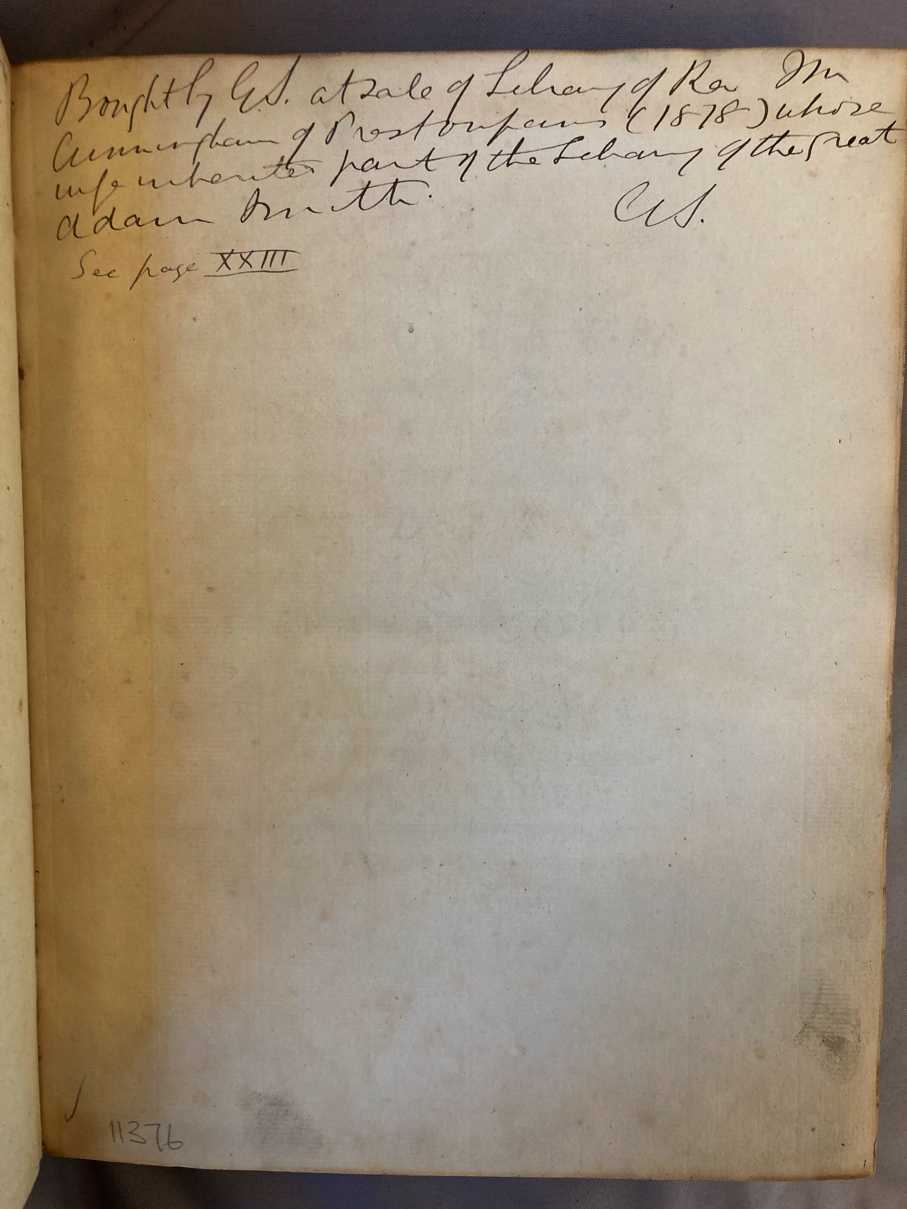 Bought by G.S. at sale of Library of Rev Mr
Cunningham of Prestonpans (1878) whose
wife inherited part of the Library of the great
Adam Smith.
G.S.
See page XXIII
11376